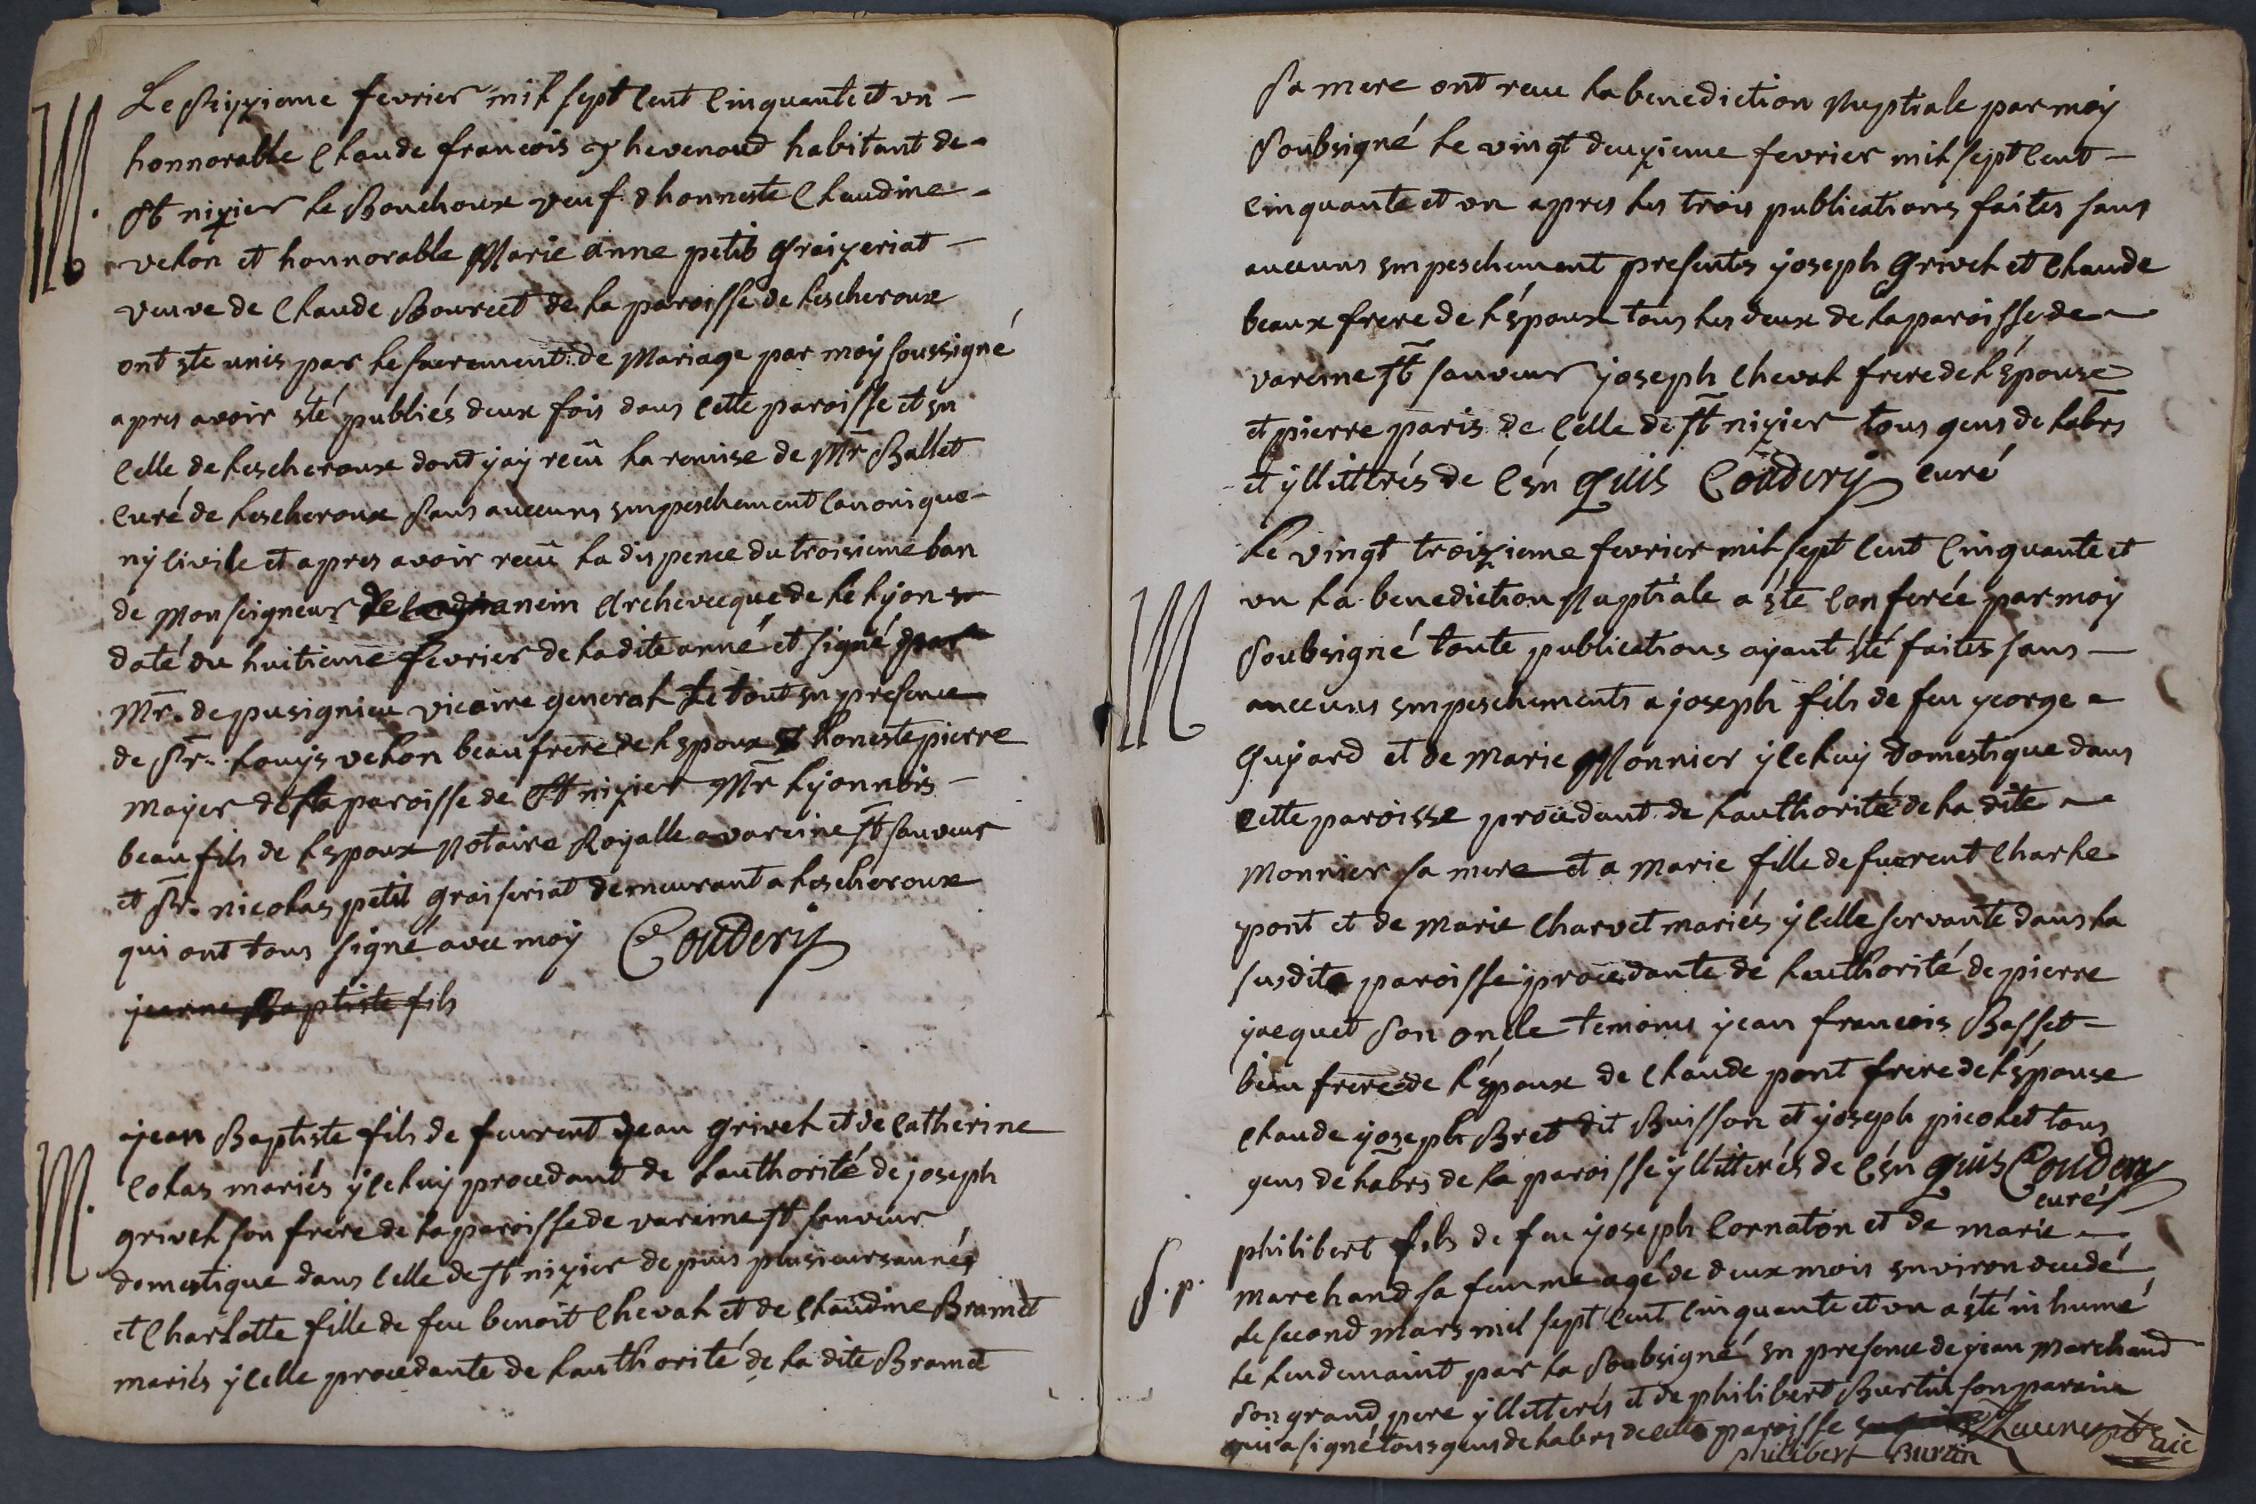 M.
Le seizzieme fevrier mil sept Cent Cinquante et un
honnorable Claude francois Thevenoud habitant de
St nizier le Bouchoux veuf d honneste Claudine
velon et honnorable Marie Anne petit Graizeriat
veuve de Claude Bourcet de la paroisse de Lescheroux
ont ste unis par le sacrement de Mariage par moy soussigné
apres avoir sté publiés deux fois dans Cette paroisse et sn
Celle de Lescheroux dont j ay recû la remise de Mr Ballet
Curé de Lescheroux sans aucuns smpeschement Canonique
ny Civile et apres avoir recû la dispence du troisieme ban
de Monseigneur Archevecque de le Lyon
daté du huitieme fevrier de la dite anné et signé par
Mr. de pusignieu vicaire general Le tout sn presence
de Sr. Louys velon beaufrere de l spoux et honeste pierre
Mayer de la paroisse de St nizier Mr Lyonnois
beau fils de l spoux Notaire Royalle a vareine St sauveur
et Sr. nicolas petit graiseriat demeurant a Lescheroux
qui ont tous signé avec moy Coudery
jeanne Baptiste fils
M.
jean Baptiste fils de feurent Jean Grivel et de Catherine
Colas mariés yceluy procedant de l authorité de joseph
grivel son frere de la paroisse de vareine St sauveur
domestique dans Celle de St nizier depuis plusieurs année
et Charlotte fille de feu benoit Cheval et de Claudine Bramet
mariés ycelle procedante de l authorité de la dite Bramet
sa mere ont receu la benediction Nuptiale par moy
soubsigné le vingt deuxieme fevrier mil sept Cent
Cinquante et un apres les trois publications faites sans
aucuns smpeschement presents joseph Grivel et Claude
beaux frere de l éspoux tous les deux de la paroisse de
vareine St sauveur joseph Cheval frere de l éspouse
et pierre paris de Celle de St nizier tous gens de labrs
et yllitterés de Csn quis Coudery Curé
M
Le vingt troizieme fevrier mil sept Cent Cinquante et
un la benediction Nuptiale a ste Conferée par moy
soubsigné toute publications ayant sté faites sans
aucuns smpeschements a joseph fils de feu george
Guyard et de Marie Monnier yceluy domestique dans
Cette paroisse procedant de l authorité de la dite
Monnier sa mere et a Marie fille de fuerent Charle
pont et de Marie Charvet mariés ycelle servante dans la
susdite paroisse procedante de l authorité de pierre
jacquet son oncle temoins jean francois Basset
beau frere de l éspoux de Claude pont frere de l éspouse
Claude joseph Bret dit Buisson et joseph picolet tous
gens de labrs de la paroisse yllitterés de Csn quis Coudery
curé
S. p.
philibert fils de feu joseph Cornaton et de marie
Marchand sa femme agé de deux mois snviron decedé
le second mars mil sept Cent Cinquante et un a sté inhumé
le lendemaint par la soubsigné sn presence de jean Marchand
son grand pere yllitterés et de philibert Burtin son parain
qui a signé tous gens de labrs de cette paroisse
philibert Burtin